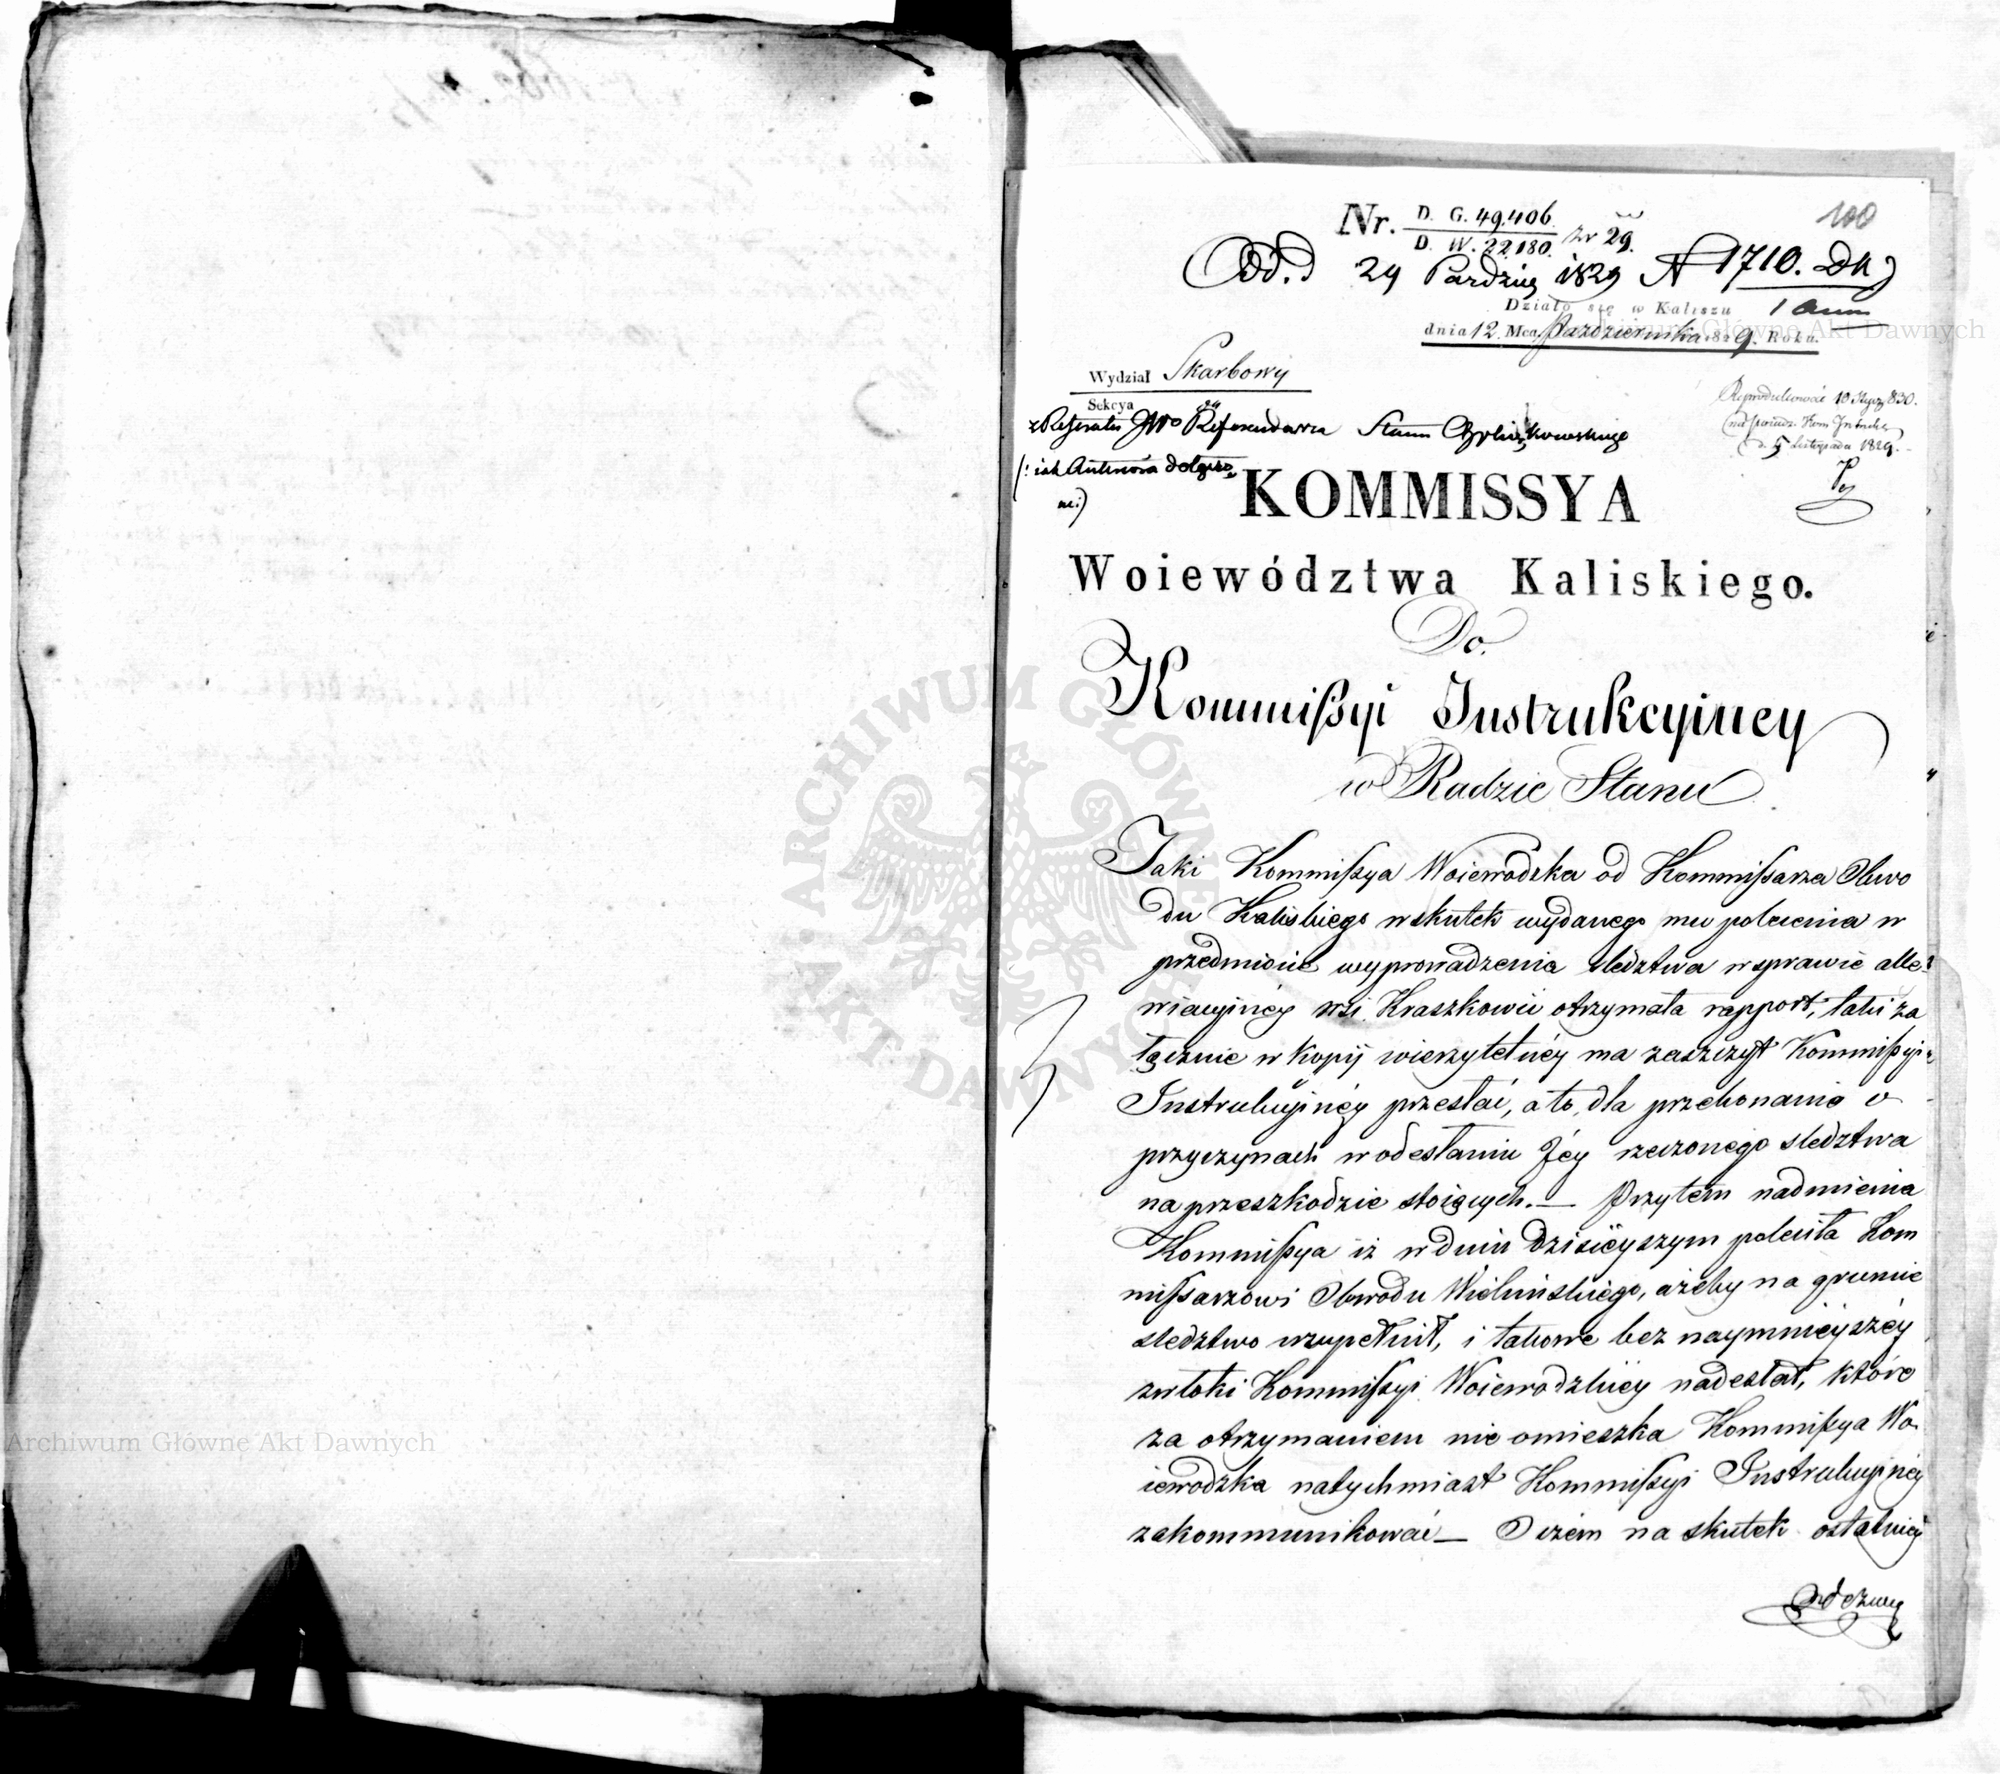 100
Nr. D. G. 49,406. / D. W. 22,180. zr 29.
Odd. 29 Pazdzier 1829 N 1710. DK
1 Ann
Działo się w Kaliszu
dnia 12 Mca Pazdziernika 1829. Roku.
Wydział Skarbowy
Sekcya
z Referatu JWo Referendarza Stanu
(: iak Antwort
Reprodukować 10 Stycz 830.
Kom Instruk
d. 5 Listopada 1829.
KOMMISSYA
Woiewództwa Kaliskiego.
Do
Kommissyi Instrukcyiney
w Radzie Stanu
Jaki Kommissya Woiewodzka od Kommissarza Obwo
du Kaliskiego w skutek wydanego mu polecenia w
przedmiocie wyprowadzenia sledztwa w sprawie alle-
wiacyinéy wsi Kraszkowic otrzymała rapport, taki za
łącznie w kopij wierzytelnéy ma zaszczyt Kommissyi
Instrukcyinéy przesłać, a to, dla przekonania o
przyczynach w odesłaniu Jéy rzeczonego sledztwa
na przeszkodzie stoiących.— Przytem nadmienia
Kommissya iż w dniu dzisiéyszym poleciła Kom
missarzowi Obwodu Wieluńskiego, ażeby na gruncie
sledztwo uzupełnił, i takowe bez naymniéyszéy
zwłoki Kommissyi Woiewodzkiéy nadesłał, które
za otrzymaniem nie omieszka Kommissya Wo-
iewodzka natychmiast Kommissyi Instrukcyinéy
zakommunikować — O czém na skutek ostatniéy
odezwy
Archiwum Główne Akt Dawnych
Archiwum Główne Akt Dawnych
ARCHIWUM GŁÓWNE AKT DAWNYCH